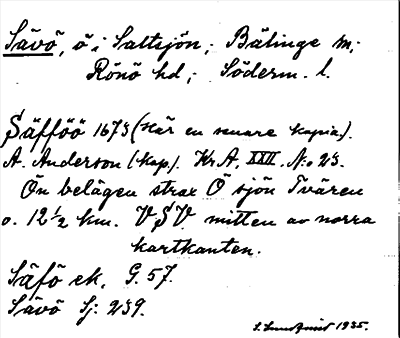 Sävö, ö i Saltsjön; Bälinge sn;
Rönö hd; Söderm. l.
Säfföö 1673 (Här en senare kopia).
A. Anderson (kop). Kr. A. XXII. N:o 23.
Ön belägen strax Ö sjön Tvären
o. 12 1/2 km. VSV mitten av norra
kartkanten.
Säfö ek. G. 57.
Sävö Sj: 239.
1935.